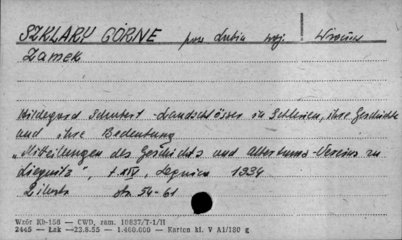 SZKLARY GÓRNE pow. Lubin woj. Wrocław
Zamek
Hildegard Schubert - Landschlösser in Schlesien, ihre Geschichte
und ihre Bedeutung
"Mitteilungen des Geschichts und Altertums-Vereins zu
Liegnitz", t. XIV, Legnica 1934
Biblioteka str 54-61
Wzór Kb-156 — CWD, zam. 10637/T-1/H
2445 — Łaz — 23.8.55 — 1.400.000 — Karton kl. V A1/180 g